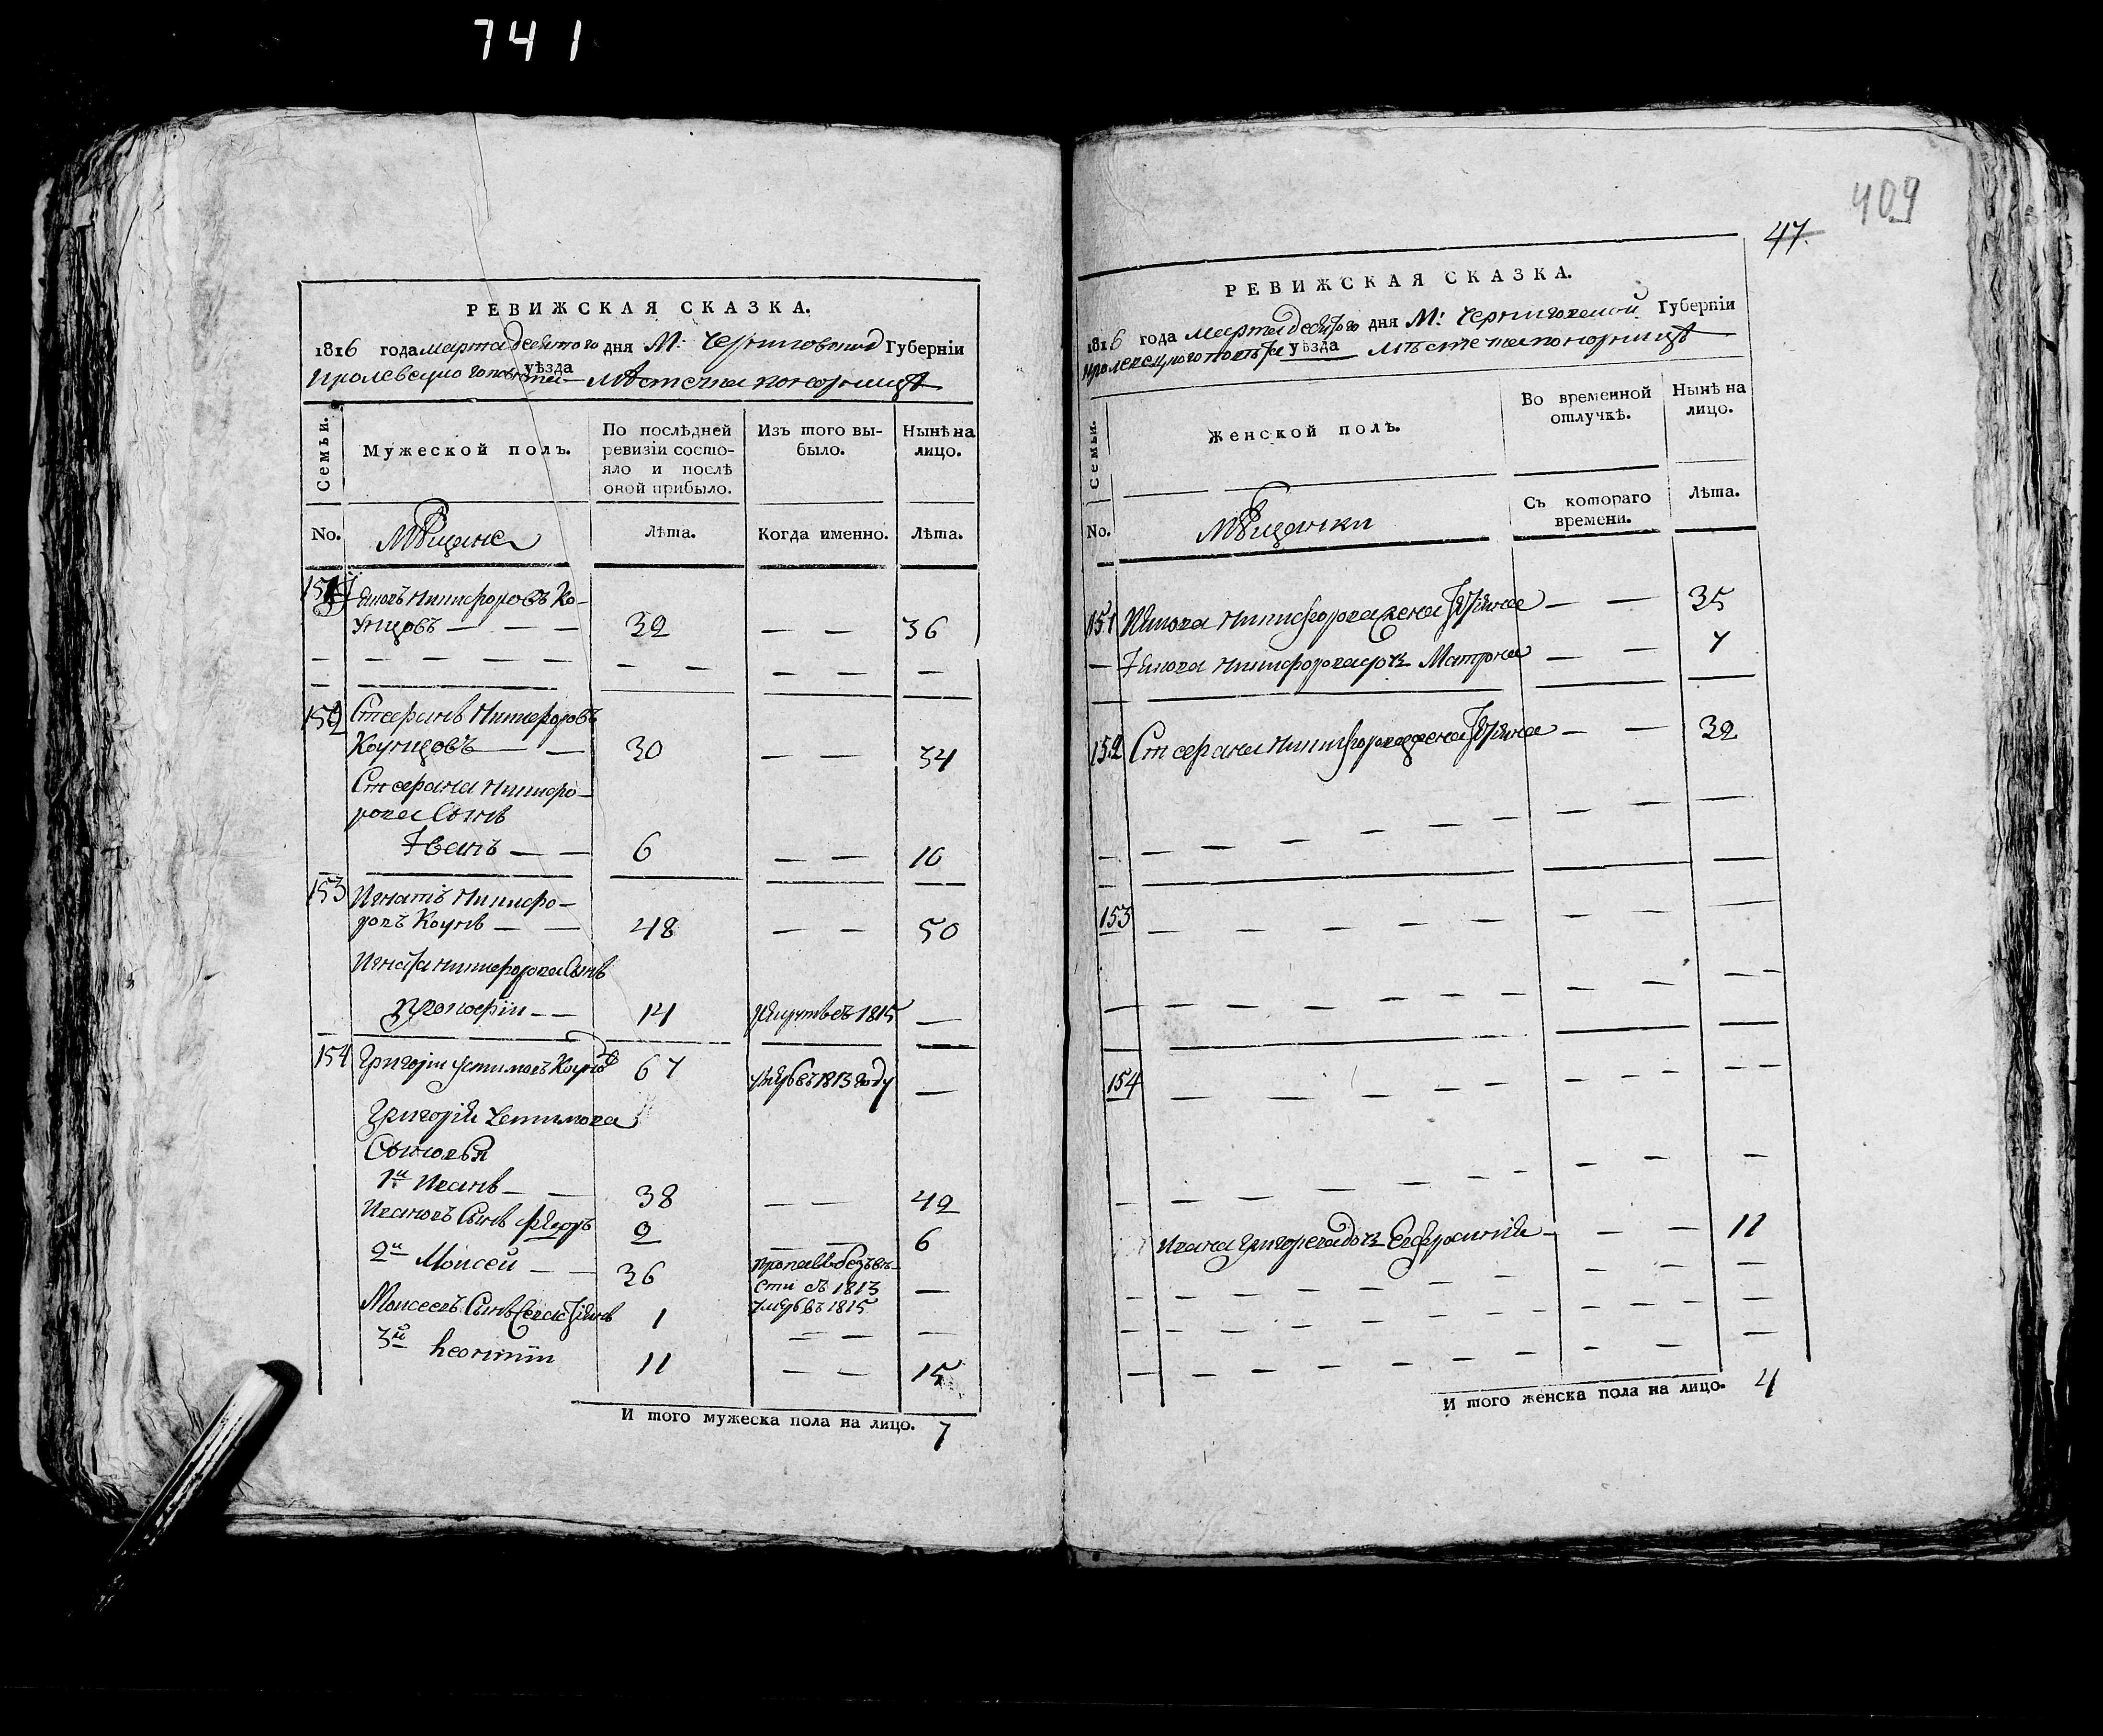 741
РЕВИЖСКАЯ СКАЗКА.
1816 года марта десятого дня М: Черниговской Губерніи
уѣзда
Кролевецкого повѣта — Мѣстечка Понорницѣ
Семьи.
Мужеской полъ.
По послѣдней ревизіи состо-
яло и послѣ
оной прибыло.
Изъ того вы-
было.
Нынѣ на
лицо.
No.
Мѣщане
Лѣта.
Когда именно.
Лѣта.
151 Никифоровъ Ко-
— — — 32 — — 36
152 Стефанъ Никифоровъ
— — 30 — — 34
Стефана Никифо-
рова Сынъ
Іванъ — — 6 — — 10
153 Игнатъ Никифо-
ровъ — — 48 — — 50
Игната Никифорова Сынъ
Прокофіи — — 14 1815 —
154 Григоріи Устимовъ 67 умре въ 1813 году —
Григорія Устимова
Сыновья
1й Иванъ — — 38 — — 42
Ивановъ Сынъ Федоръ 2 — — 6
2й Моисей — — 36 пропалъ безъ вѣ-
сти въ 1813 —
Моисеевъ Сынъ 1 умре въ 1815
3й Леонтіи 11 — — 15
И того мужеска пола на лицо. 7
409
47.
РЕВИЖСКАЯ СКАЗКА.
1816 года марта десятого дня М: Черниговской Губерніи
Кролевецкого повѣта уѣзда Мѣстечка Понорницѣ
Семьи.
Женской полъ.
Во временной
отлучкѣ.
Нынѣ на
лицо.
No.
Мѣщанки
Съ котораго
времени.
Лѣта.
151 Никифорова жена — — 35
— Никифорова дочь Матрона — — 7
152 Стефана Никифорова жена — — 32
153
154
Ивана Григорева дочь Евфросинія — — 11
И того женска пола на лицо. 4